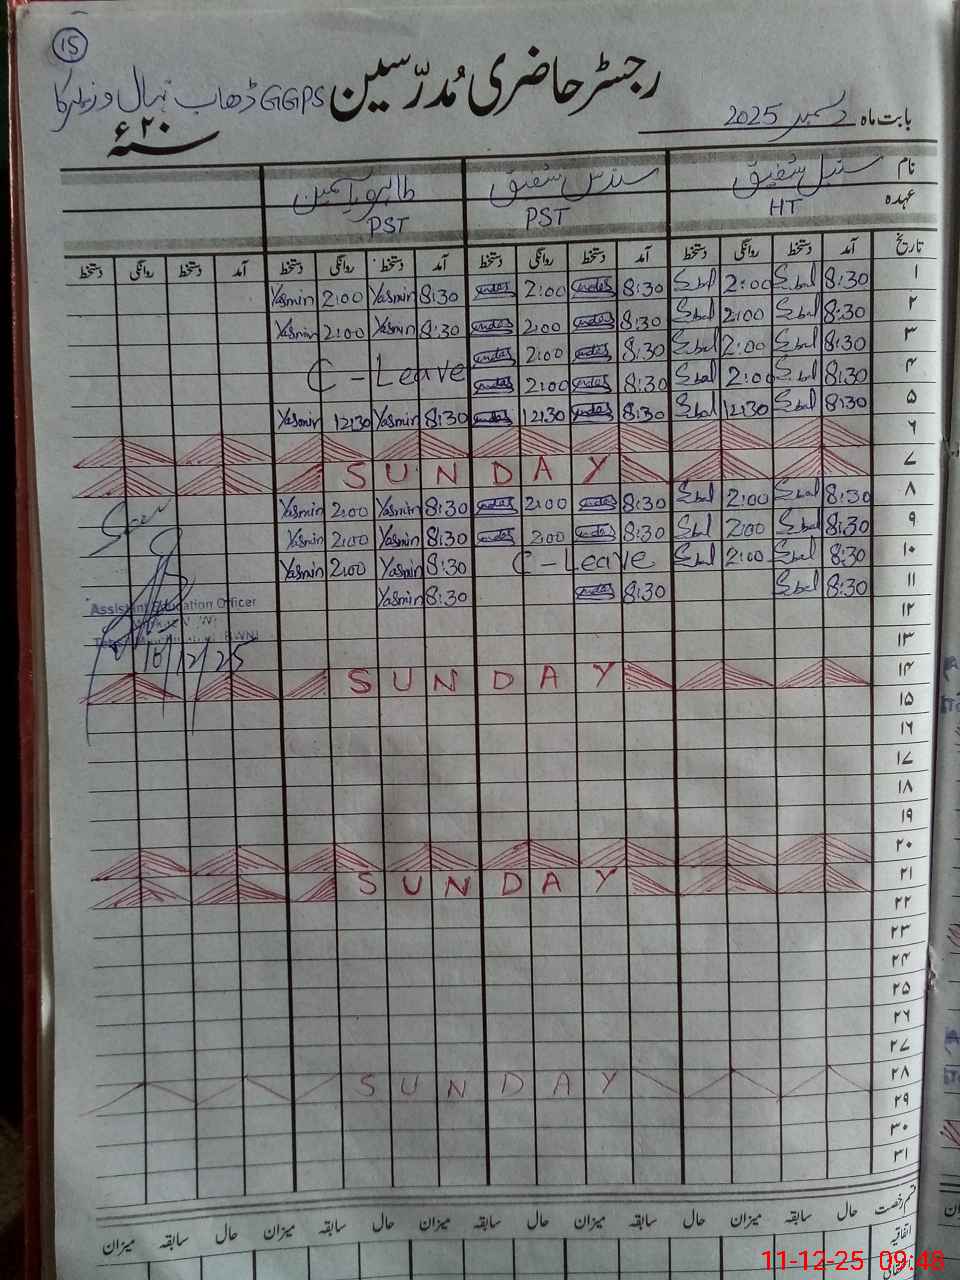 15
رجسٹر حاضری مُدرّسین GGPS ڈھاب نہال وزیرکا
بابت ماہ دسمبر 2025 سنہ ۲۰ء
نام سنبل شفیق سندس شفیق طاہرہ یاسمین
عہدہ HT PST PST
تاریخ آمد دستخط روانگی دستخط آمد دستخط روانگی دستخط آمد دستخط روانگی دستخط آمد دستخط روانگی دستخط
۱ 8:30 Sbal 2:00 Sbal 8:30 sundas 2:00 sundas 8:30 Yasmin 2:00 Yasmin
۲ 8:30 Sbal 2:00 Sbal 8:30 sundas 2:00 sundas 8:30 Yasmin 2:00 Yasmin
۳ 8:30 Sbal 2:00 Sbal 8:30 sundas 2:00 sundas C-Leave
۴ 8:30 Sbal 2:00 Sbal 8:30 sundas 2:00 sundas
۵ 8:30 Sbal 12:30 Sbal 8:30 sundas 12:30 sundas 8:30 Yasmin 12:30 Yasmin
۶
۷ SUNDAY
۸ 8:30 Sbal 2:00 Sbal 8:30 sundas 2:00 sundas 8:30 Yasmin 2:00 Yasmin
۹ 8:30 Sbal 2:00 Sbal 8:30 sundas 2:00 sundas 8:30 Yasmin 2:00 Yasmin
۱۰ 8:30 Sbal 2:00 Sbal C-Leave 8:30 Yasmin 2:00 Yasmin
۱۱ 8:30 Sbal 8:30 sundas 8:30 Yasmin
Seen
Assistant Education Officer
10/12/25
۱۲
۱۳
۱۴ SUNDAY
۱۵
۱۶
۱۷
۱۸
۱۹
۲۰
۲۱ SUNDAY
۲۲
۲۳
۲۴
۲۵
۲۶
۲۷
۲۸ SUNDAY
۲۹
۳۰
۳۱
قسم رخصت حال سابقہ میزان حال سابقہ میزان حال سابقہ میزان حال سابقہ میزان
اتفاقیہ
11-12-25 09:48